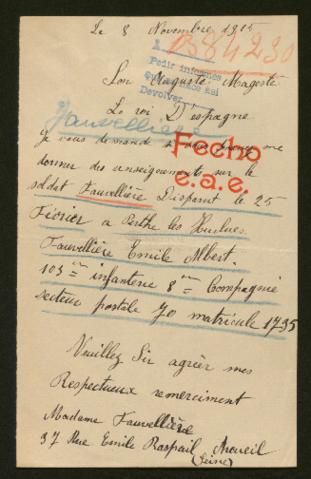 Le 8 Novembre 1915
B 84230
Pedir informes
Devolver
Son Auguste Magesté
Le roi D'espagne
Fauvellière
je vous demande si vous pouvez me
donner des renseignements sur le
soldat Fauvellière Disparut le 25
Fevrier a Perthe les Hurlues.
Fecho
e.a.e.
Fauvellière Emile Albert.
103 ème infanterie 8 ème Compagnie
secteur postale 70 matricule 1735
Veuillez Sir agrèer mes
Respectueux remerciment
Madame Fauvellière
37 Rue Emile Raspail Arcueil
(Seine)